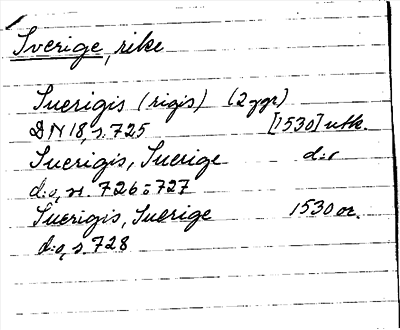 Sverige, rike
Suerigis (rigis) (2 ggr)
DN 18, s. 725 [1530] utk.
Suerigis, Suerige d:o
d:o, s. 726 o 727
Suerigis, Suerige 1530 or.
d:o, s. 728